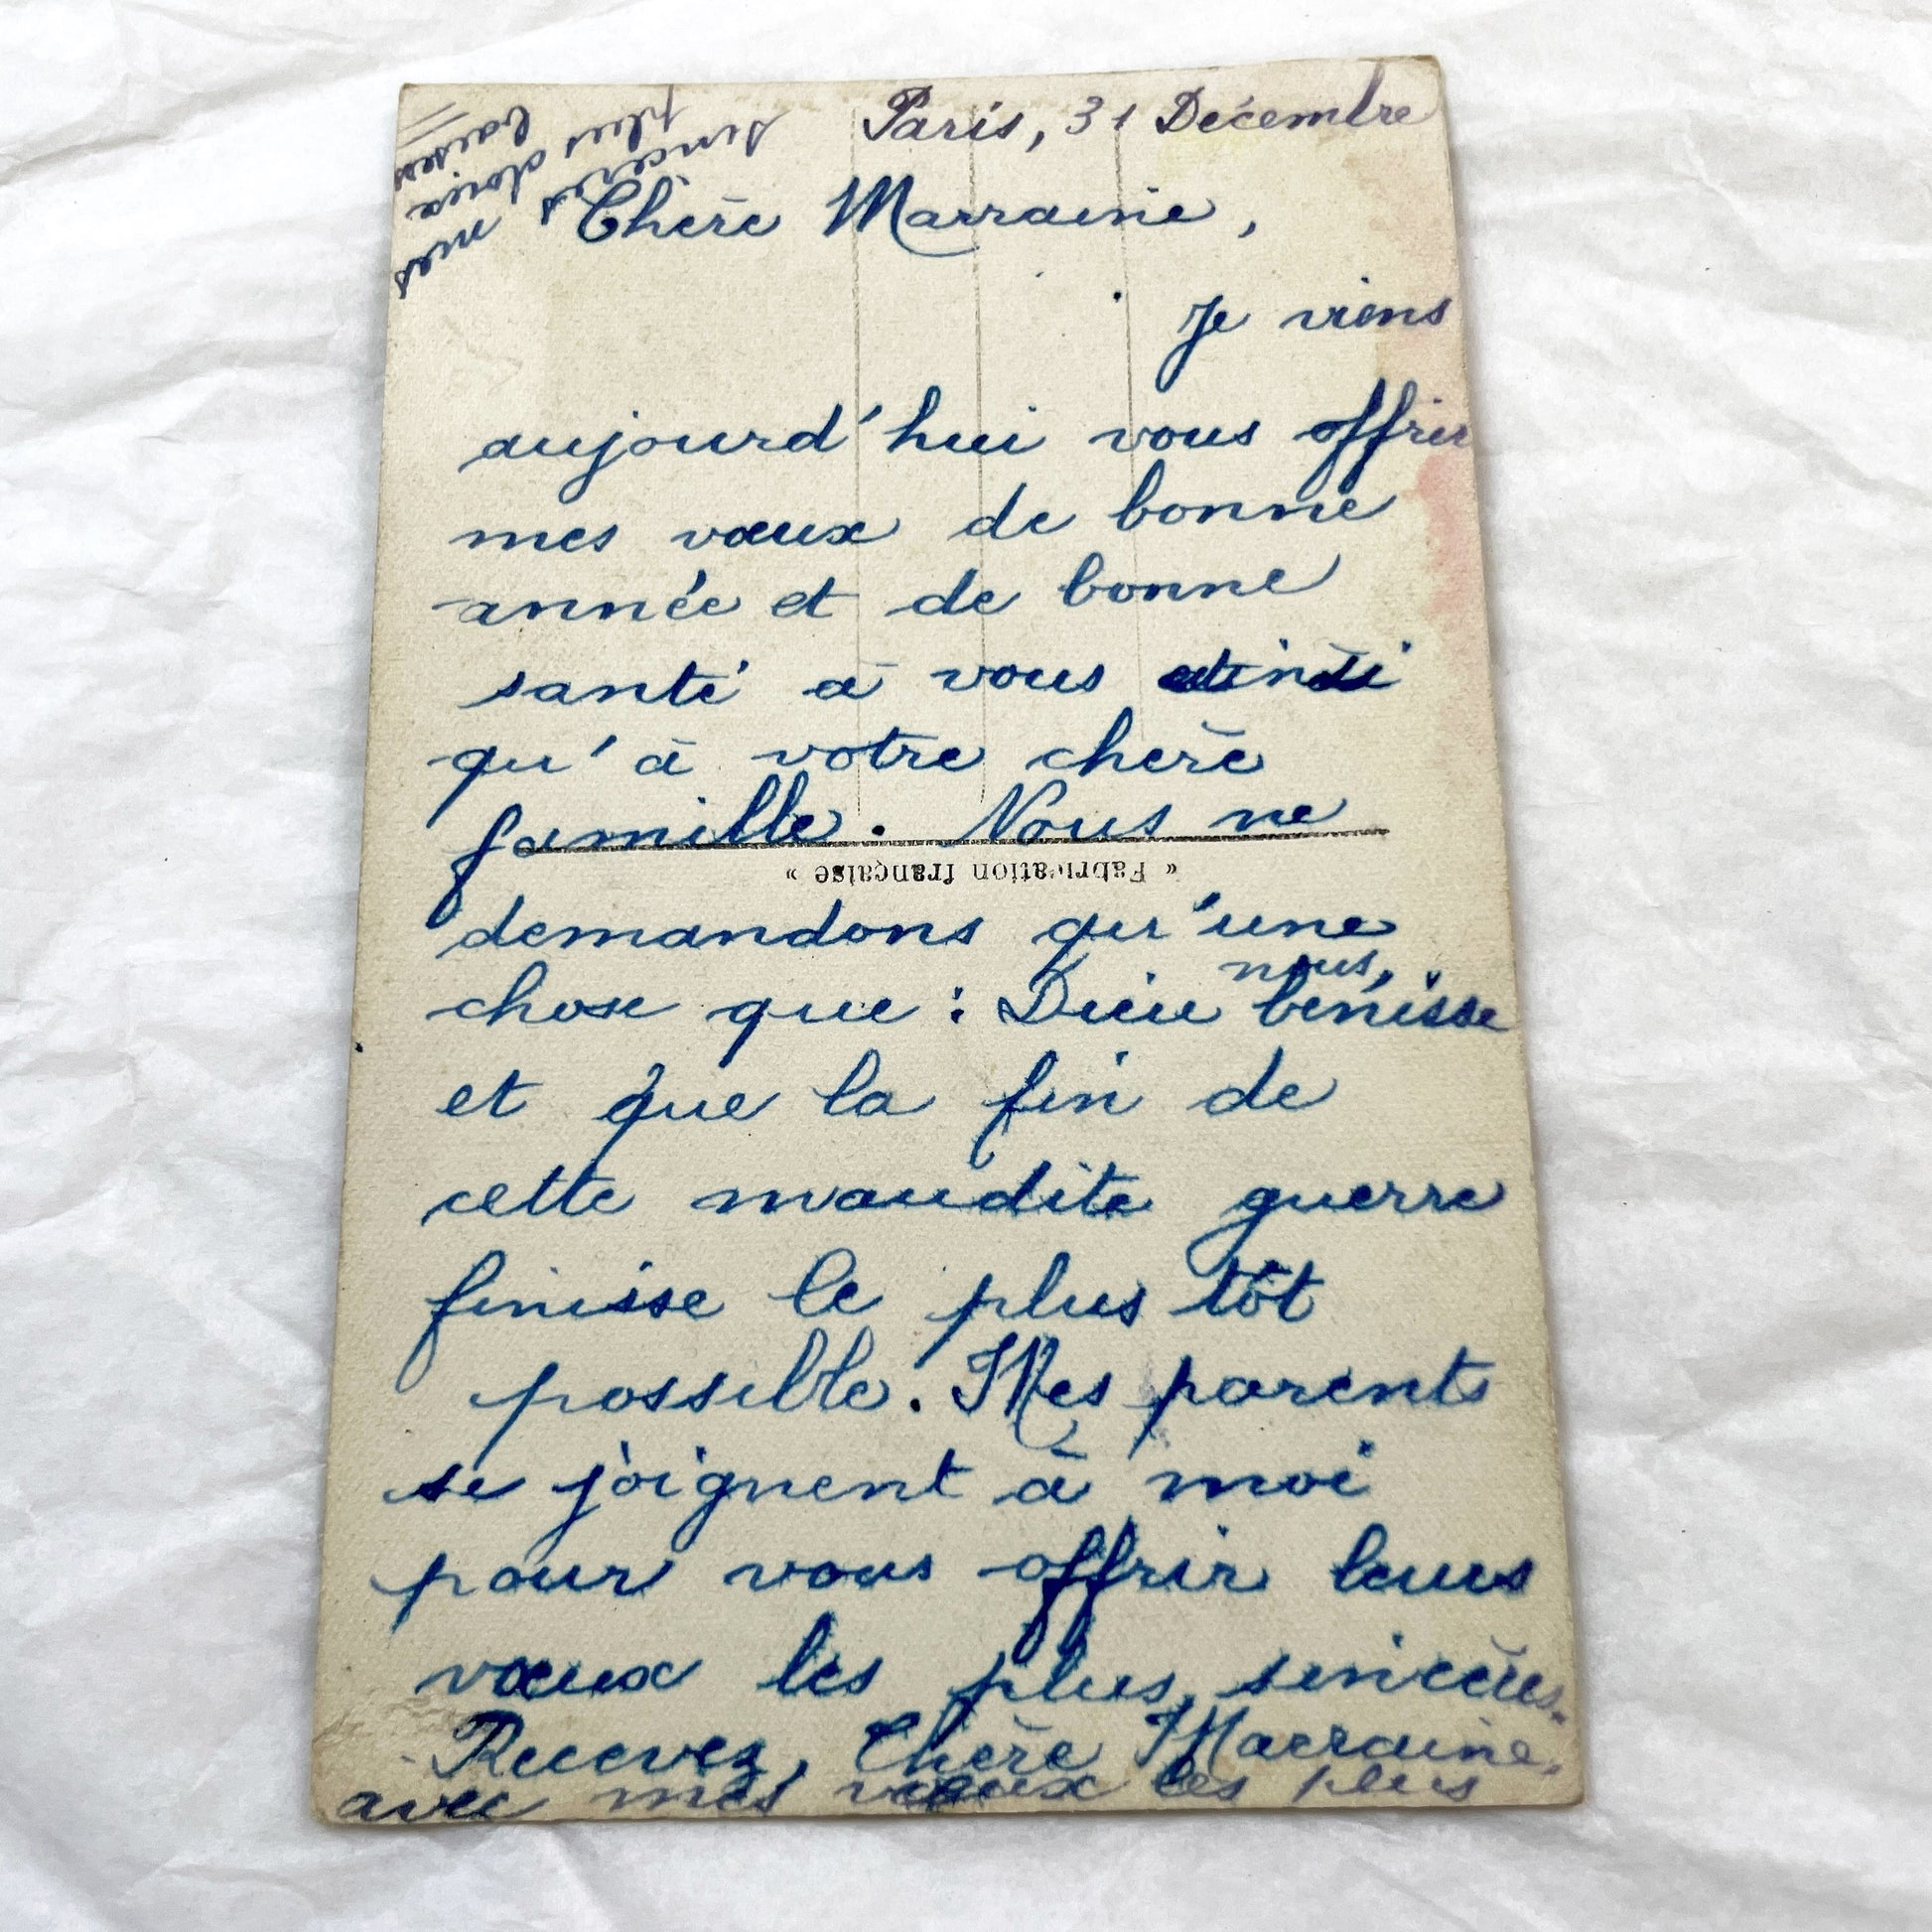 Paris, 31 Décembre
Chère Marraine,
Je viens
aujourd'hui vous offrir
mes vœux de bonne
année et de bonne
santé à vous ainsi
qu'à votre chère
famille. Nous ne
« Fabrication française »
demandons qu'une
chose que : Dieu nous bénisse
et que la fin de
cette maudite guerre
finisse le plus tôt
possible. Mes parents
se joignent à moi
pour vous offrir leurs
vœux les plus sincères.
Recevez, Chère Marraine,
avec mes vœux les plus
sincères mes
plus doux
baisers